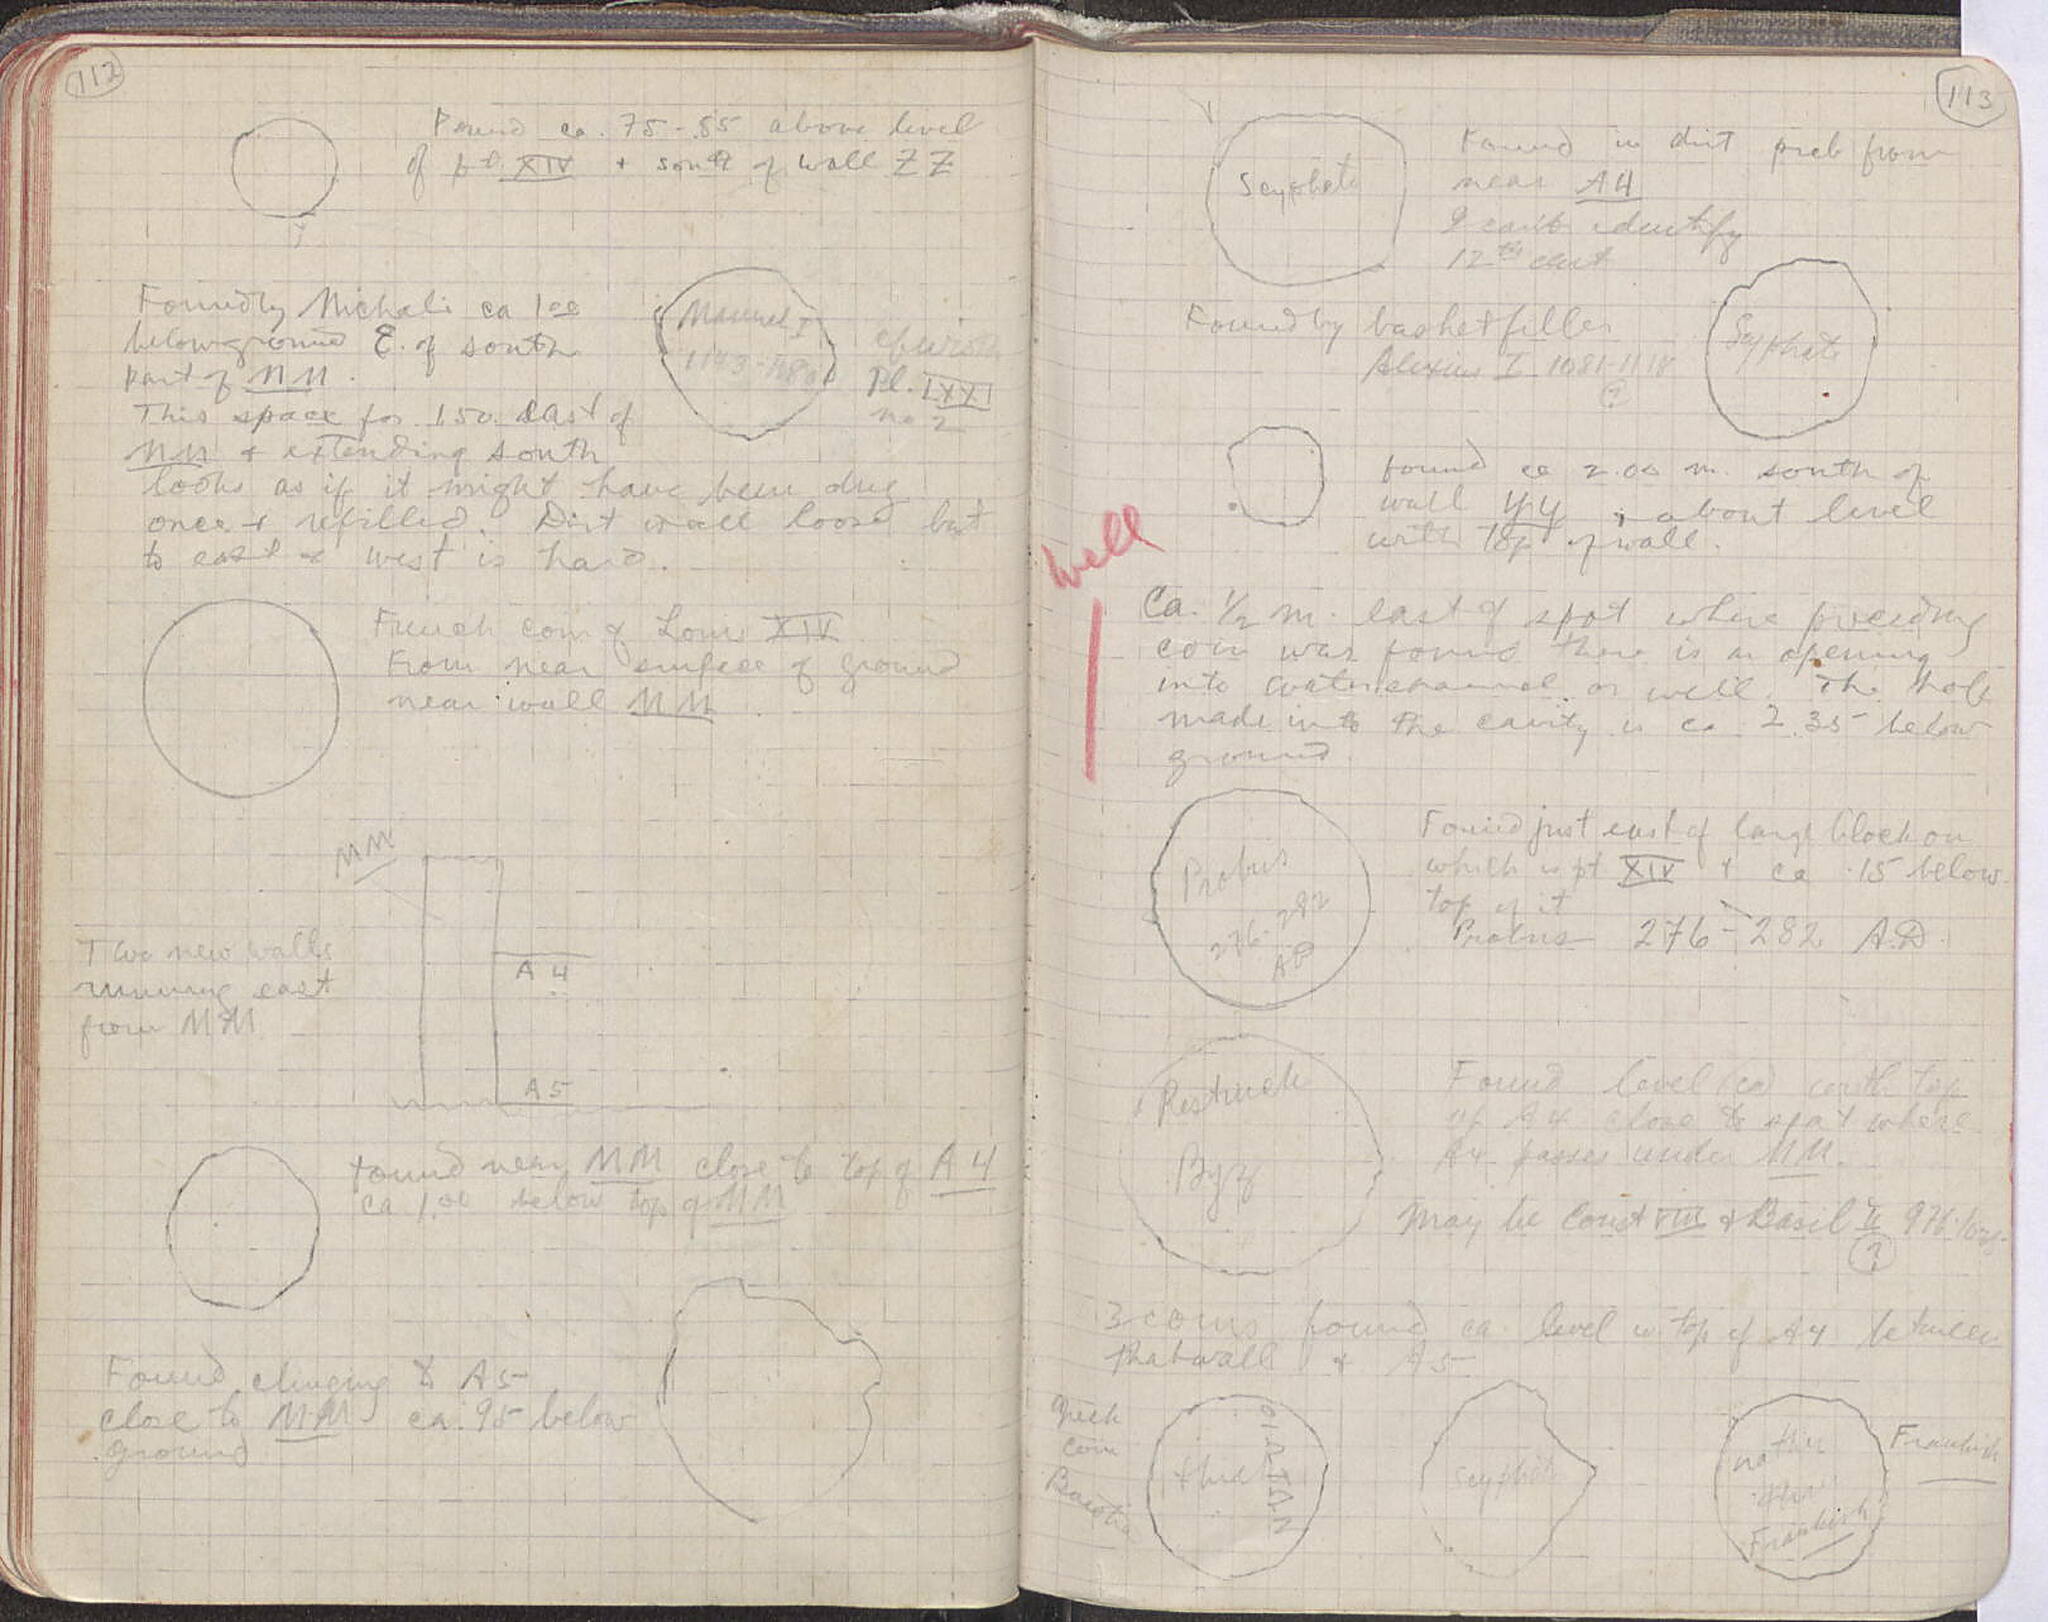 112
Found ca .75-.85 above level
of pt. XIV + south of wall ZZ
Found by Michali ca 1.00
below ground E. of south
part of MM.
Manuel I
1143-1180
Pl. LXXI
no 2
This space for 1.50 east of
MM & extending south
looks as if it might have been dug
once & refilled. Dirt is all loose but
to east & west is hard.
French coin of Louis XIV
From near surface of ground
near wall MM.
MM
A 4
Two new walls
running east
from MM
A 5
Found near MM close to top of A 4
ca 1.00 below top of MM
Found clinging to A5
close to MM ca .95 below
ground
113
Scyphate
Found in dirt prob from
near A4
I can't identify
12th cent
Found by basketfiller
Alexius I 1081-1118
(?)
Scyphate
found ca 2.00 m. south of
wall YY, about level
with top of wall.
Well
Ca. 1/2 m. east of spot where preceding
coin was found there is an opening
into water channel or well. The hole
made into the cavity is ca 2.35 below
ground.
Probus
276-282
AD
Found just east of large block on
which is pt XIV + ca .15 below
top of it
Probus 276-282 A.D.
Restruck
Byz
Found level (ca) with top
of A4 close to spot where
A4 passes under MM.
May be Const VIII & Basil II 976-1025
(?)
3 coins found ca. level w. top of A4 between
that wall & A5
Greek
coin
Boeotia
thick
scyphate
rather
thin
Frankish
Frankish